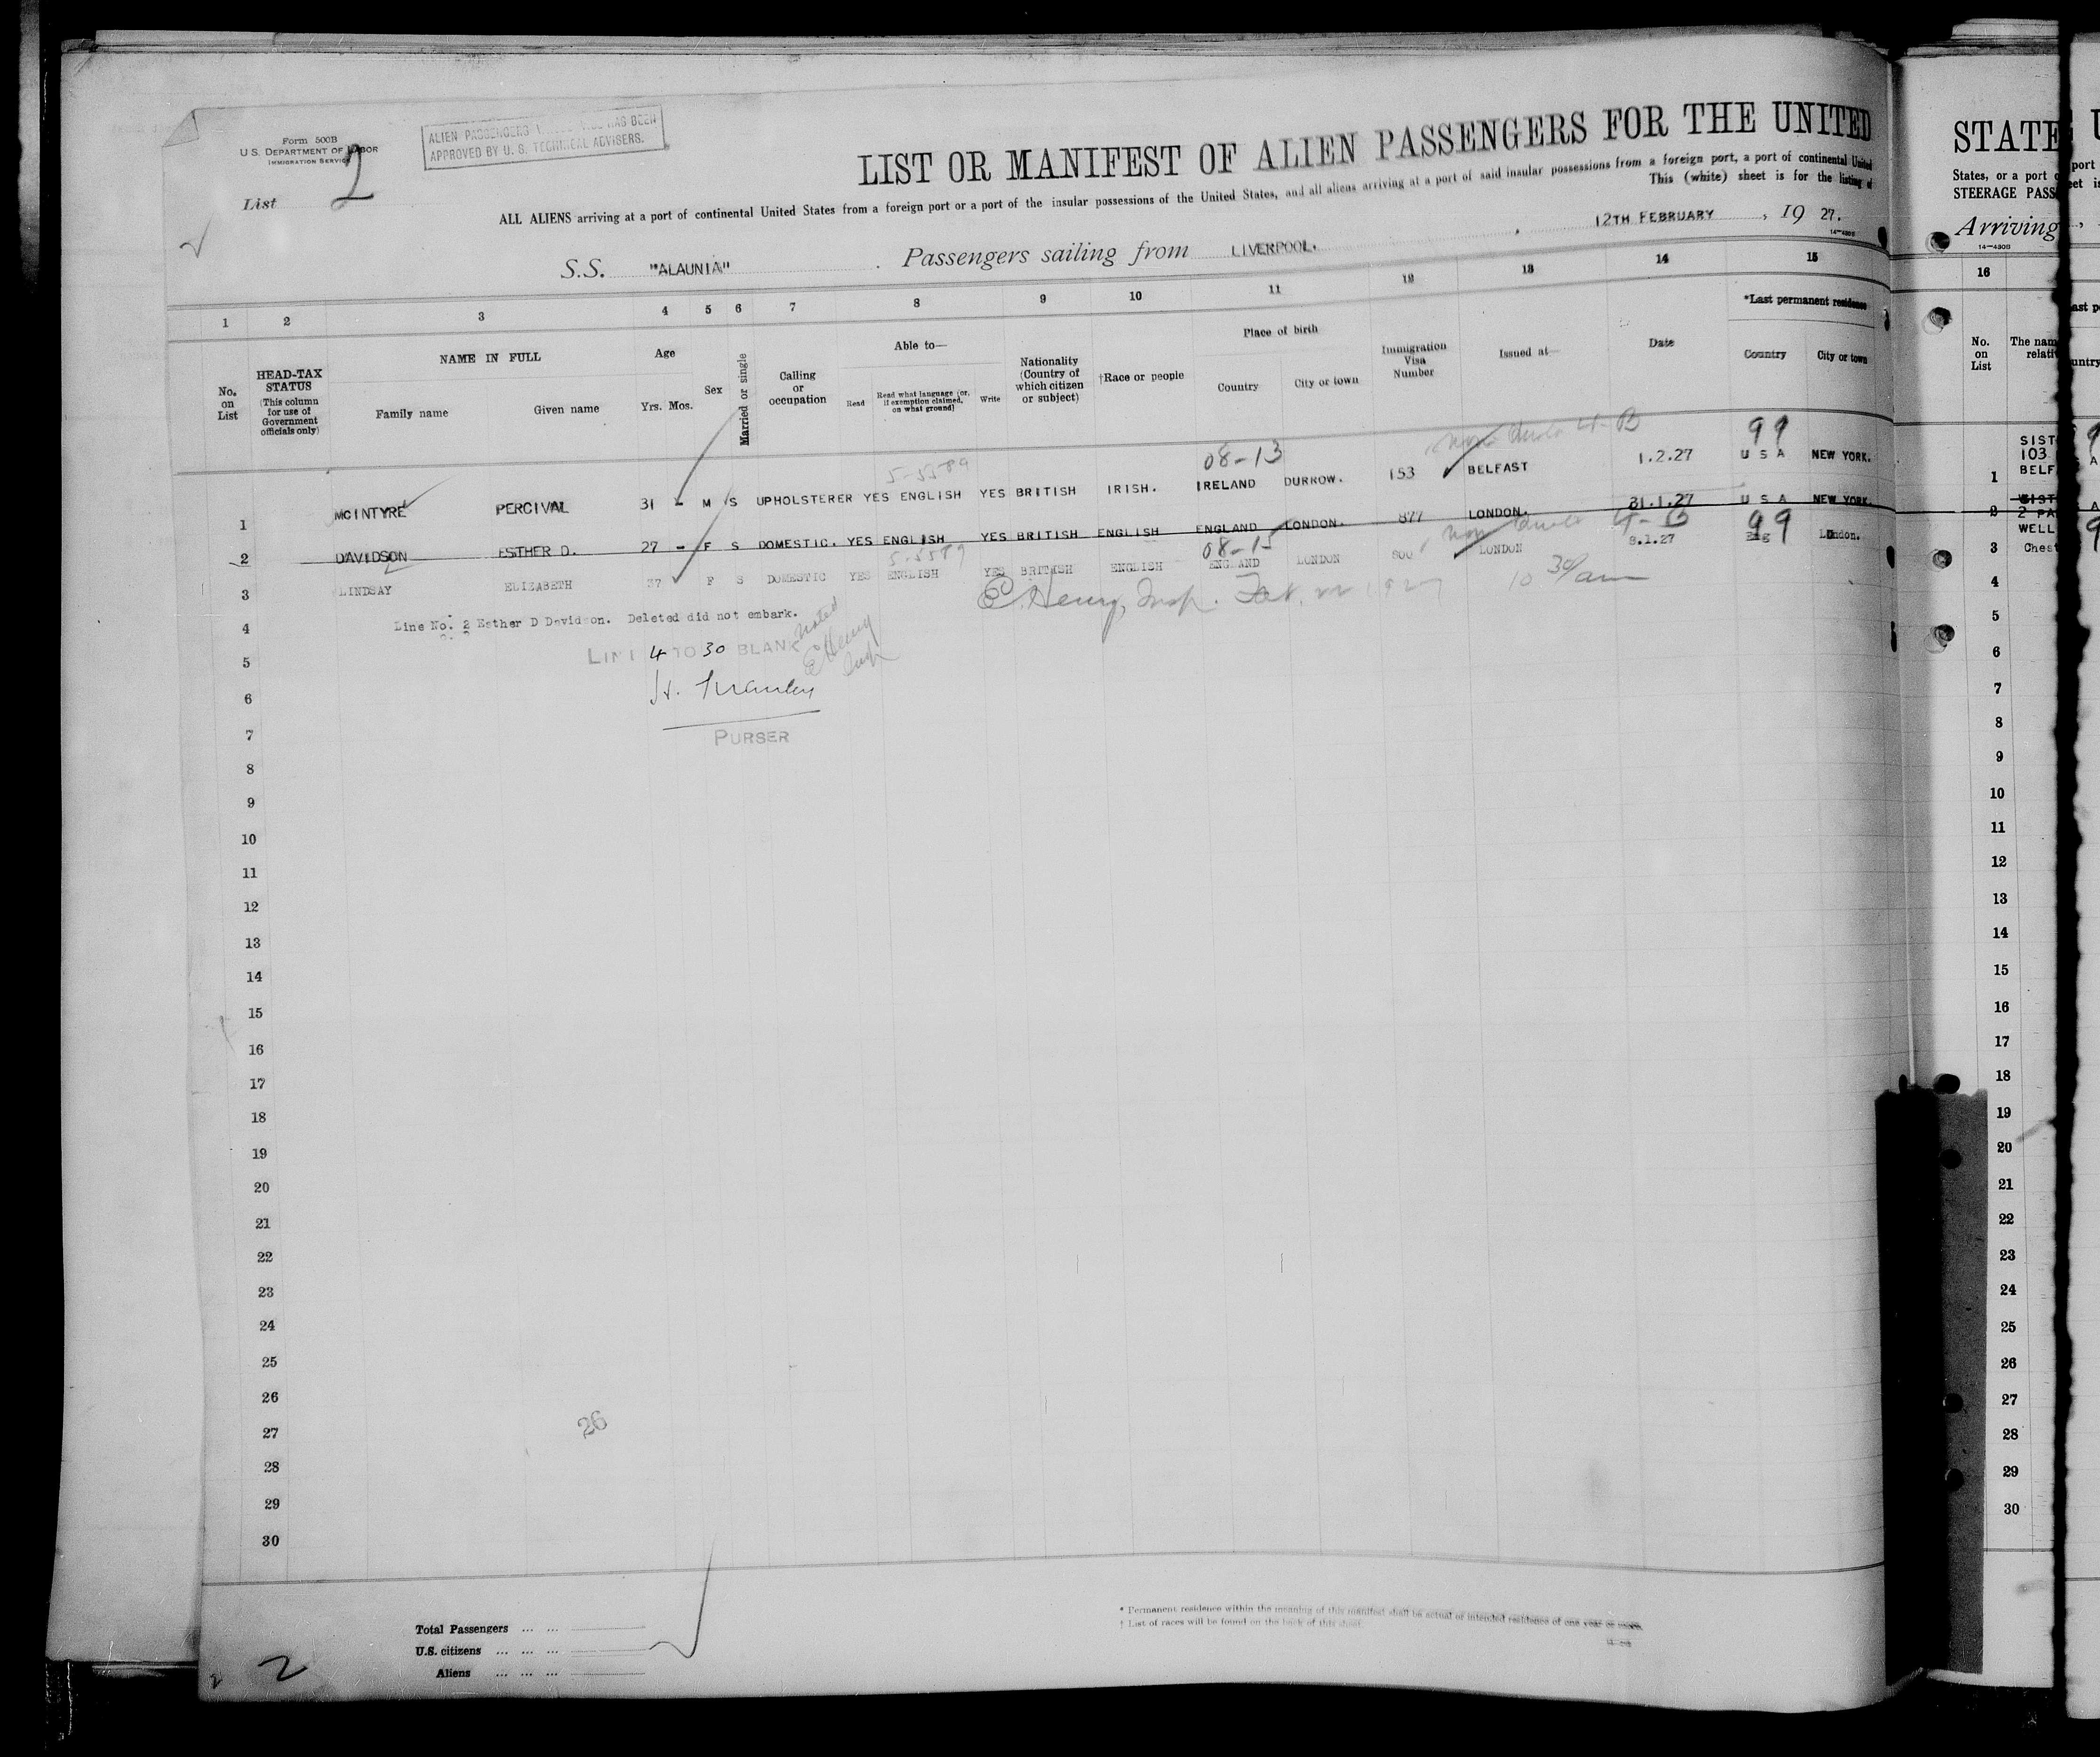 Form 500B
U.S. DEPARTMENT OF LABOR
IMMIGRATION SERVICE
List 2
ALIEN PASSENGERS HAS BEEN
APPROVED BY U. S. TECHNICAL ADVISERS.
LIST OR MANIFEST OF ALIEN PASSENGERS FOR THE UNITED
ALL ALIENS arriving at a port of continental United States from a foreign port or a port of the insular possessions of the United States, and all aliens arriving at a port of said insular possessions from a foreign port, a port of continental United
This (white) sheet is for the listing of
S.S. "ALAUNIA" Passengers sailing from LIVERPOOL. , 12TH FEBRUARY , 19 27.
14—430B
1 2 3 4 5 6 7 8 9 10 11 12 13 14 15
No. on List
HEAD-TAX STATUS (This column for use of Government officials only)
NAME IN FULL
Family name Given name
Age
Yrs. Mos.
Sex
Married or single
Calling or occupation
Able to—
Read Read what language (or, if exemption claimed, on what ground) Write
Nationality (Country of which citizen or subject)
†Race or people
Place of birth
Country City or town
Immigration Visa Number
Issued at—
Date
*Last permanent residence
Country City or town
5-5589 08-13 4-B 99
1 MCINTYRE PERCIVAL 31 - M S UPHOLSTERER YES ENGLISH YES BRITISH IRISH. IRELAND DURROW. 153 BELFAST 1.2.27 U S A NEW YORK.
2 DAVIDSON ESTHER D. 27 - F S DOMESTIC. YES ENGLISH YES BRITISH ENGLISH ENGLAND LONDON. 877 LONDON. 31.1.27 U S A NEW YORK.
5-5589 08-15 4-B 99
3 LINDSAY ELIZABETH 37 F S DOMESTIC YES ENGLISH YES BRITISH ENGLISH ENGLAND LONDON 800 LONDON 8.1.27 Eng London.
E. Henry, Insp. Feb. 22 1927 10 30/am
4 Line No. 2 Esther D Davidson. Deleted did not embark.
noted
E Henry
Insp
5 LINE 4 TO 30 BLANK
6
7 PURSER
8
9
10
11
12
13
14
15
16
17
18
19
20
21
22
23
24
25
26
27 26
28
29
30
Total Passengers ... ...
U.S. citizens ... ... ...
Aliens ... ... ...
2
* Permanent residence within the meaning of this manifest shall be actual or intended residence of one year or more.
† List of races will be found on the back of this sheet.
STATE
States, or a port
STEERAGE PASS
Arriving
14—430B
16
No. on List
The nam
relati
SIST
103
1 BELF
2 2 PA
WELL
3 Chest
4
5
6
7
8
9
10
11
12
13
14
15
16
17
18
19
20
21
22
23
24
25
26
27
28
29
30